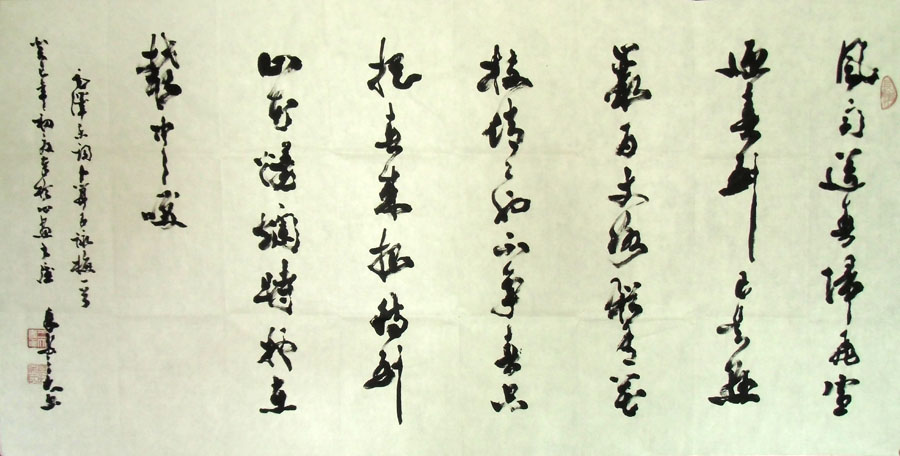 風雨送春歸飛雪
迎春到已是懸
崖百丈冰猶有花
枝俏〻也不争春只
把春来報待到
山花爛熳時她在
叢中笑
毛澤東詞卜算子詠梅一首
癸巳年初夏書於